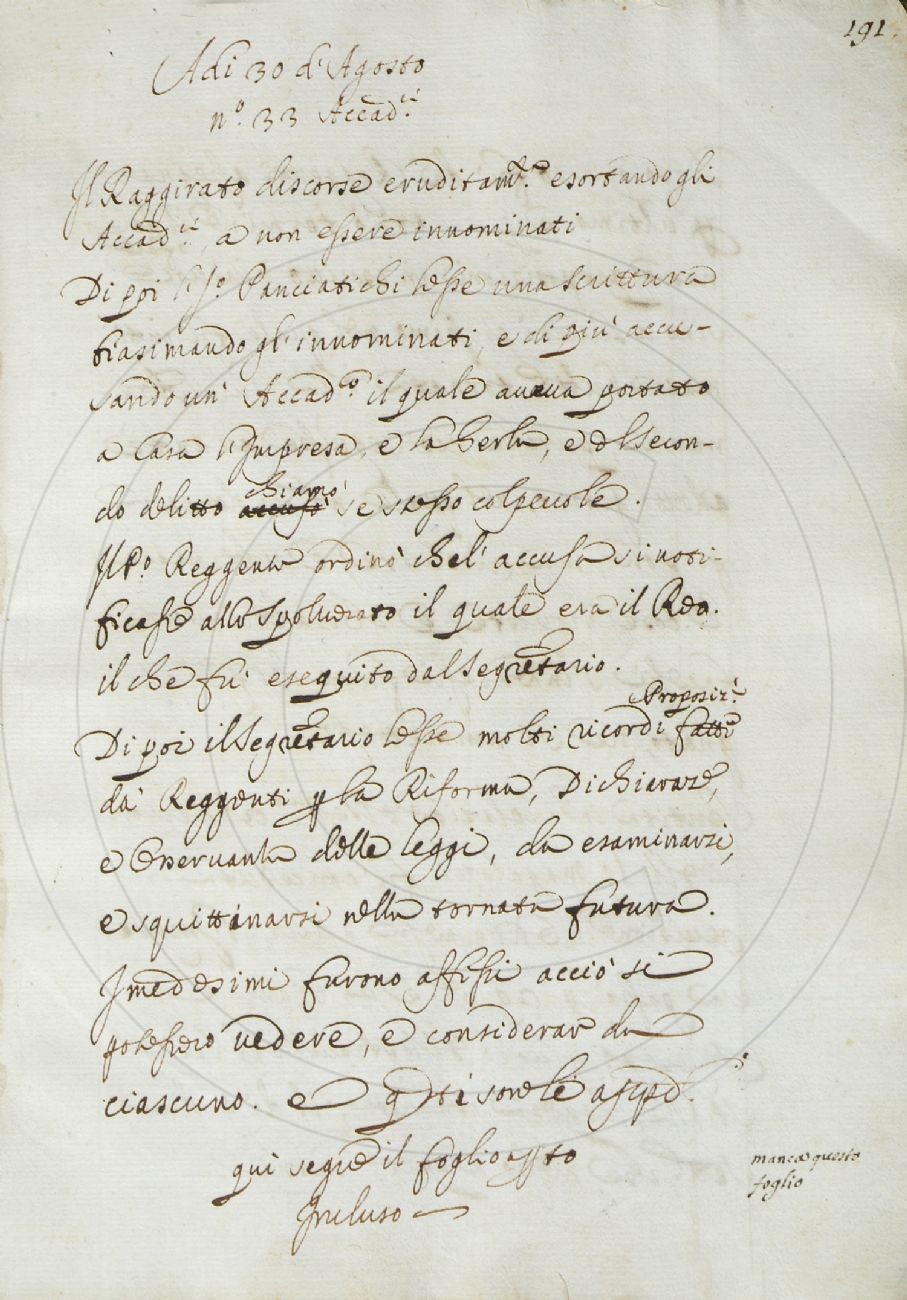 191.
Adi 30 d'Agosto
n.º 33 Accad.ci
Il Raggirato discorse eruditam.te esortando gli
Accad.ci a non essere innominati
Di poi l' Panciatichi lesse una scrittura
biasimando gl'innominati, e di più accu-
sando un' Accad.co il quale aveva portato
a Casa l'Impresa, e la Gerla, e del secon-
do delitto accusò chiamò se stesso colpevole.
Il P.º Reggente ordinò che l'accusa si noti-
ficasse allo Spolverato il quale era il Reo.
il che fù eseguito dal Segretario.
Di poi il Segretario lesse molti ricordi fatti Proposizi
da' Reggenti p la Riforma, Dichiaraze,
e Osservanza delle leggi, da esaminarsi,
e squittinarsi nella tornata futura.
I medesimi furono affissi acciò si
potessero vedere, e considerar da
ciascuno. e q.ti sono li
qui segue il foglio
Incluso
manca questo
foglio